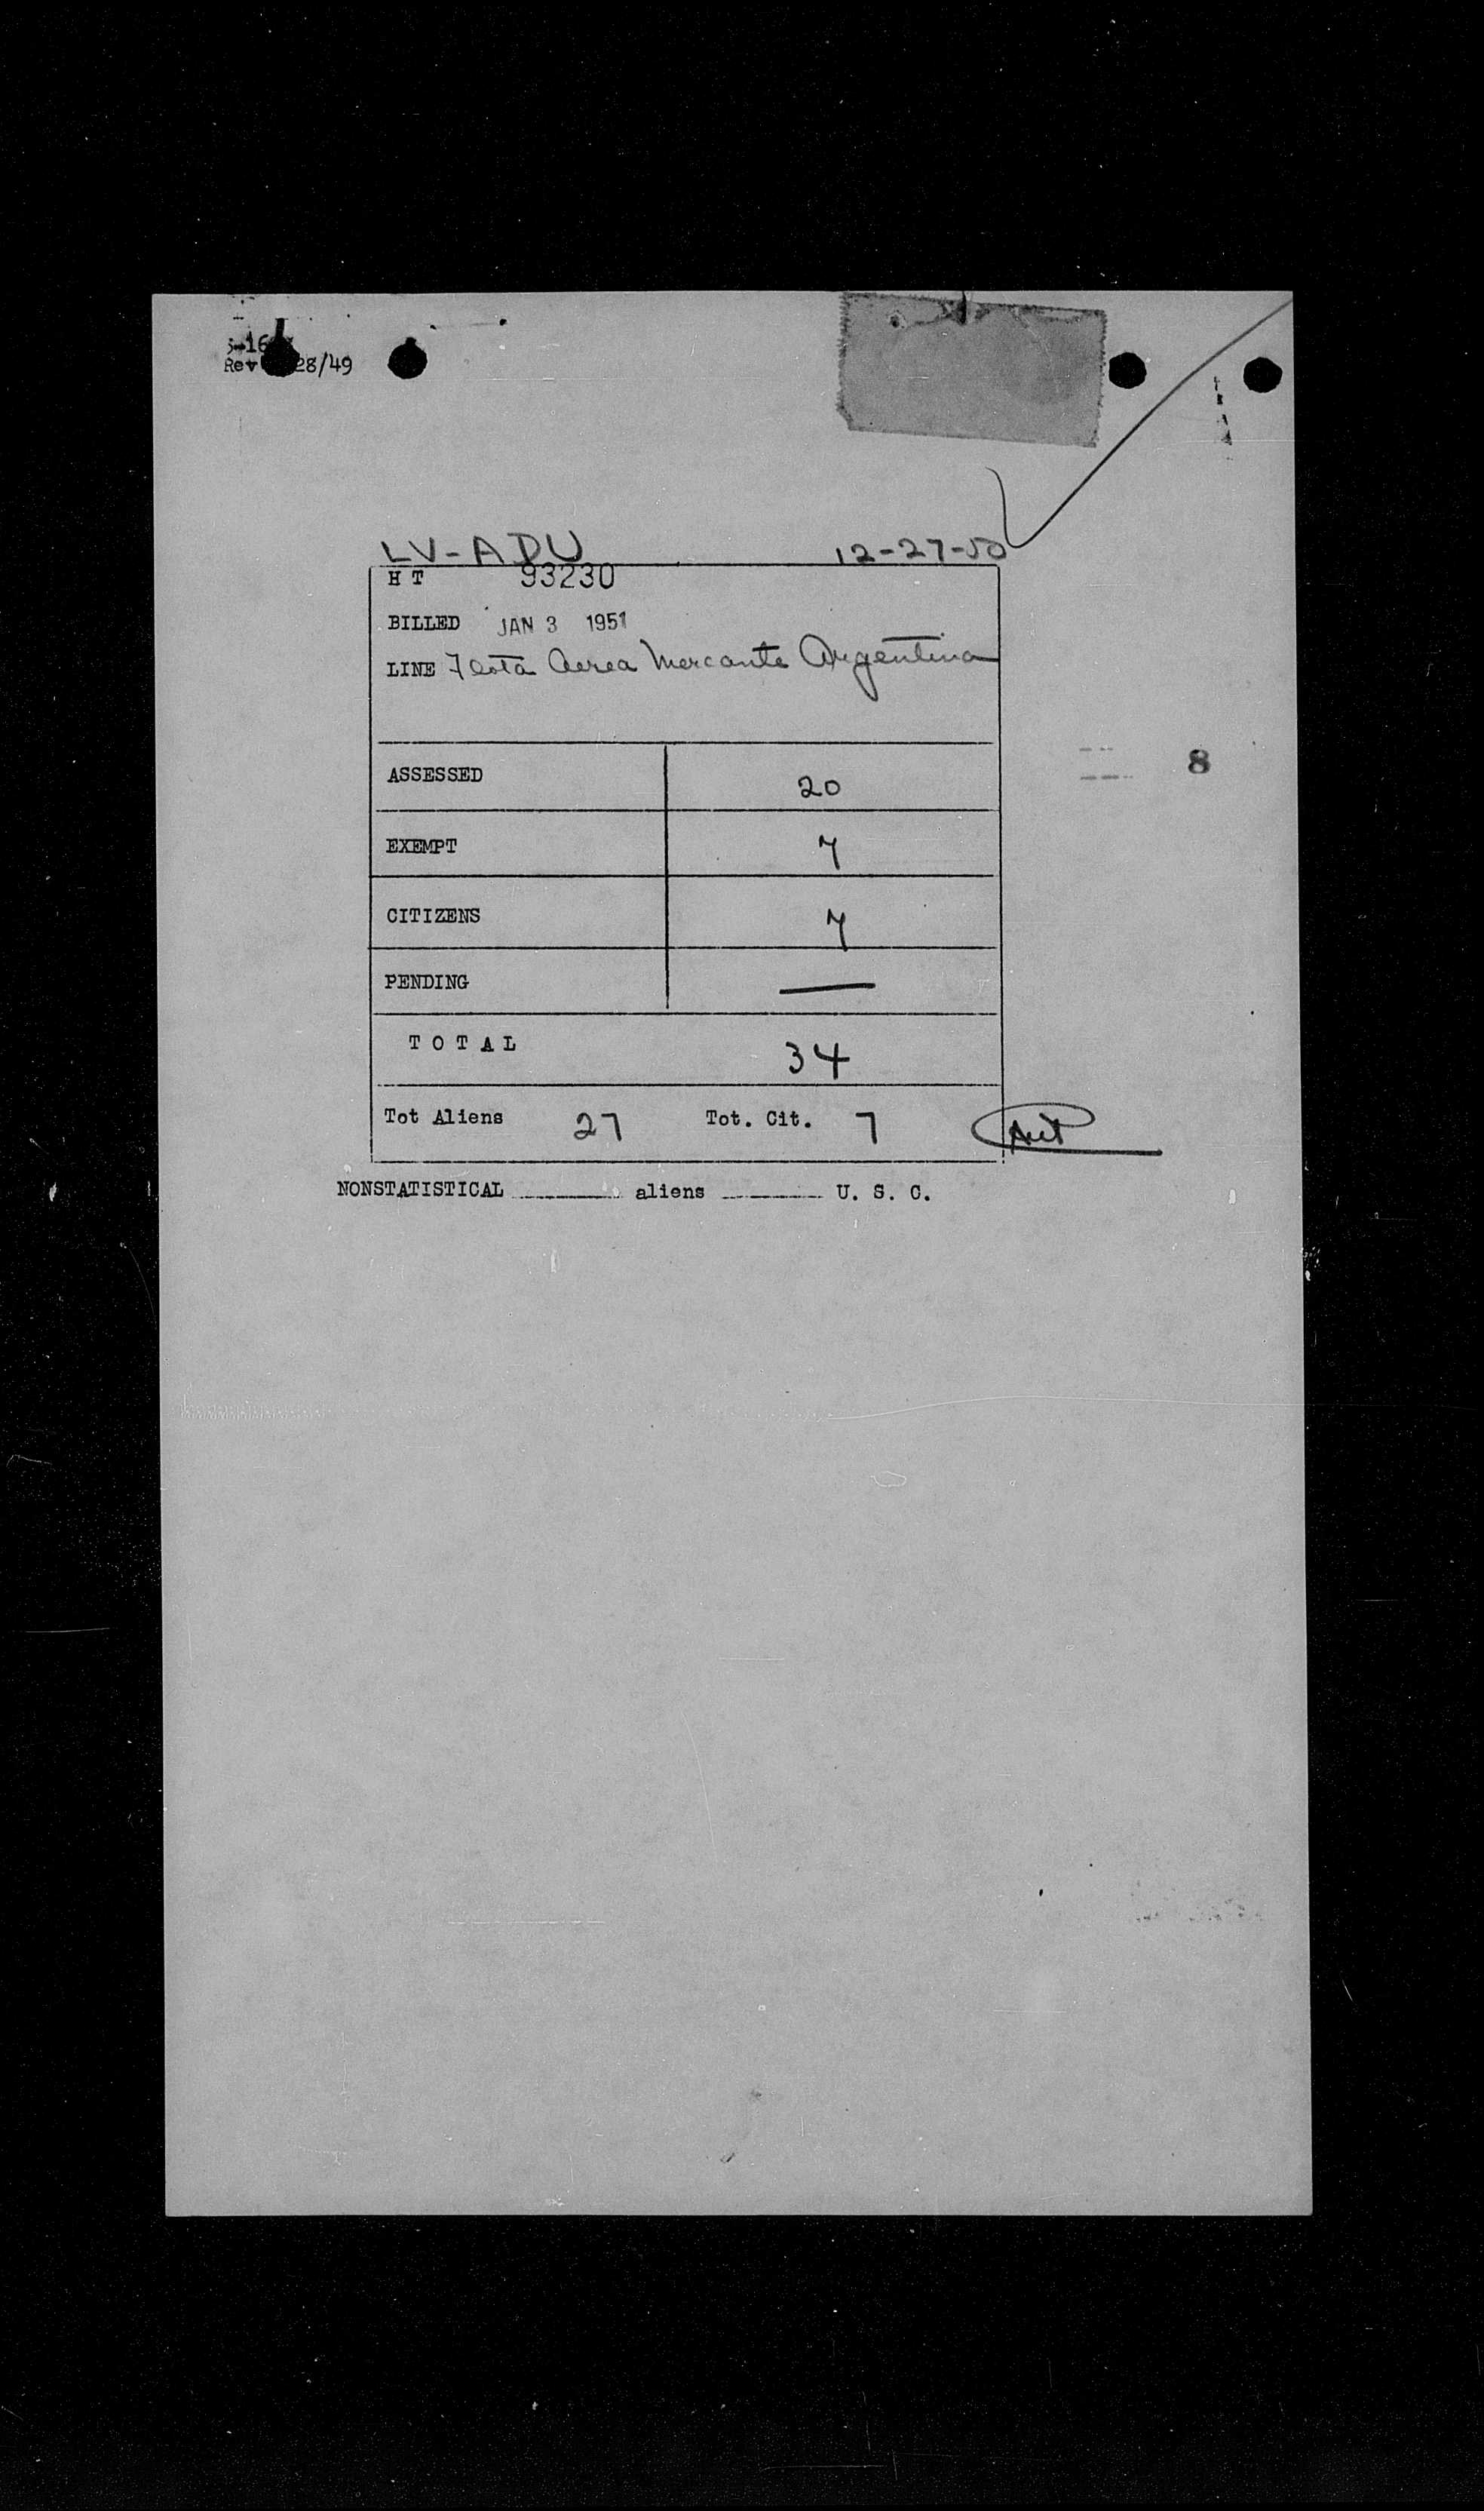 Rev 28/49
LV-ADU 12-27-50
H T 93230
BILLED JAN 3 1951
LINE Flota Aerea Mercante Argentina
ASSESSED 20
8
EXEMPT 7
CITIZENS 7
PENDING —
TOTAL 34
Tot Aliens 27 Tot. Cit. 7
NONSTATISTICAL ________ aliens ________ U. S. C.